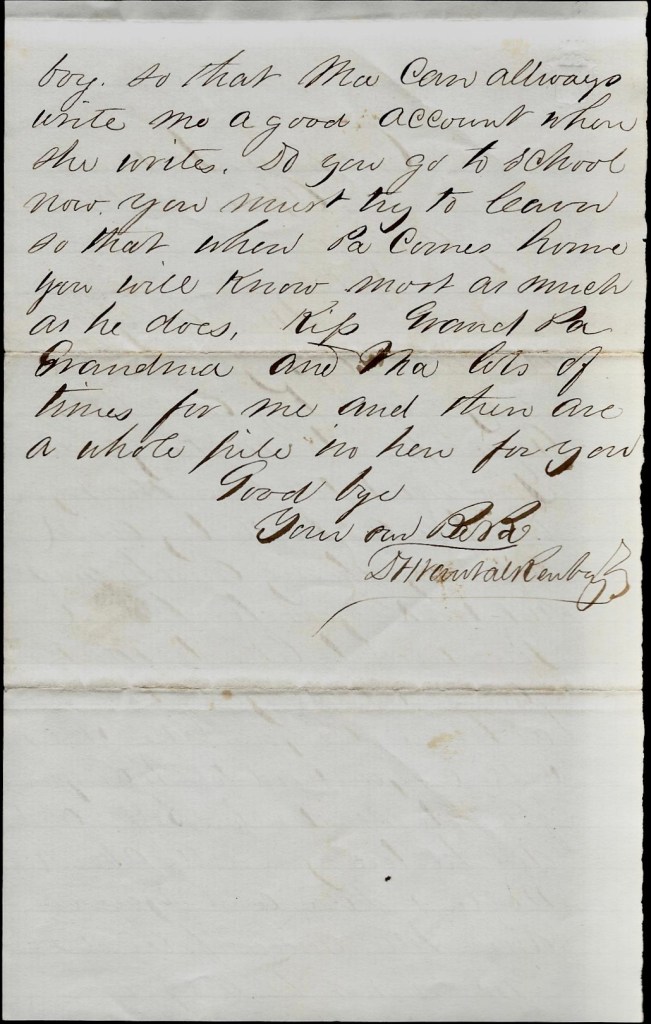 boy. so that Ma Can allways
write me a good account when
she writes. Do you go to School
now. you must try to learn
so that when Pa Comes home
you will Know most as much
as he does. Kiss Grand Pa
Grandma and Ma lots of
times for me and there are
a whole pile in here for you
Good bye
Your own Pa